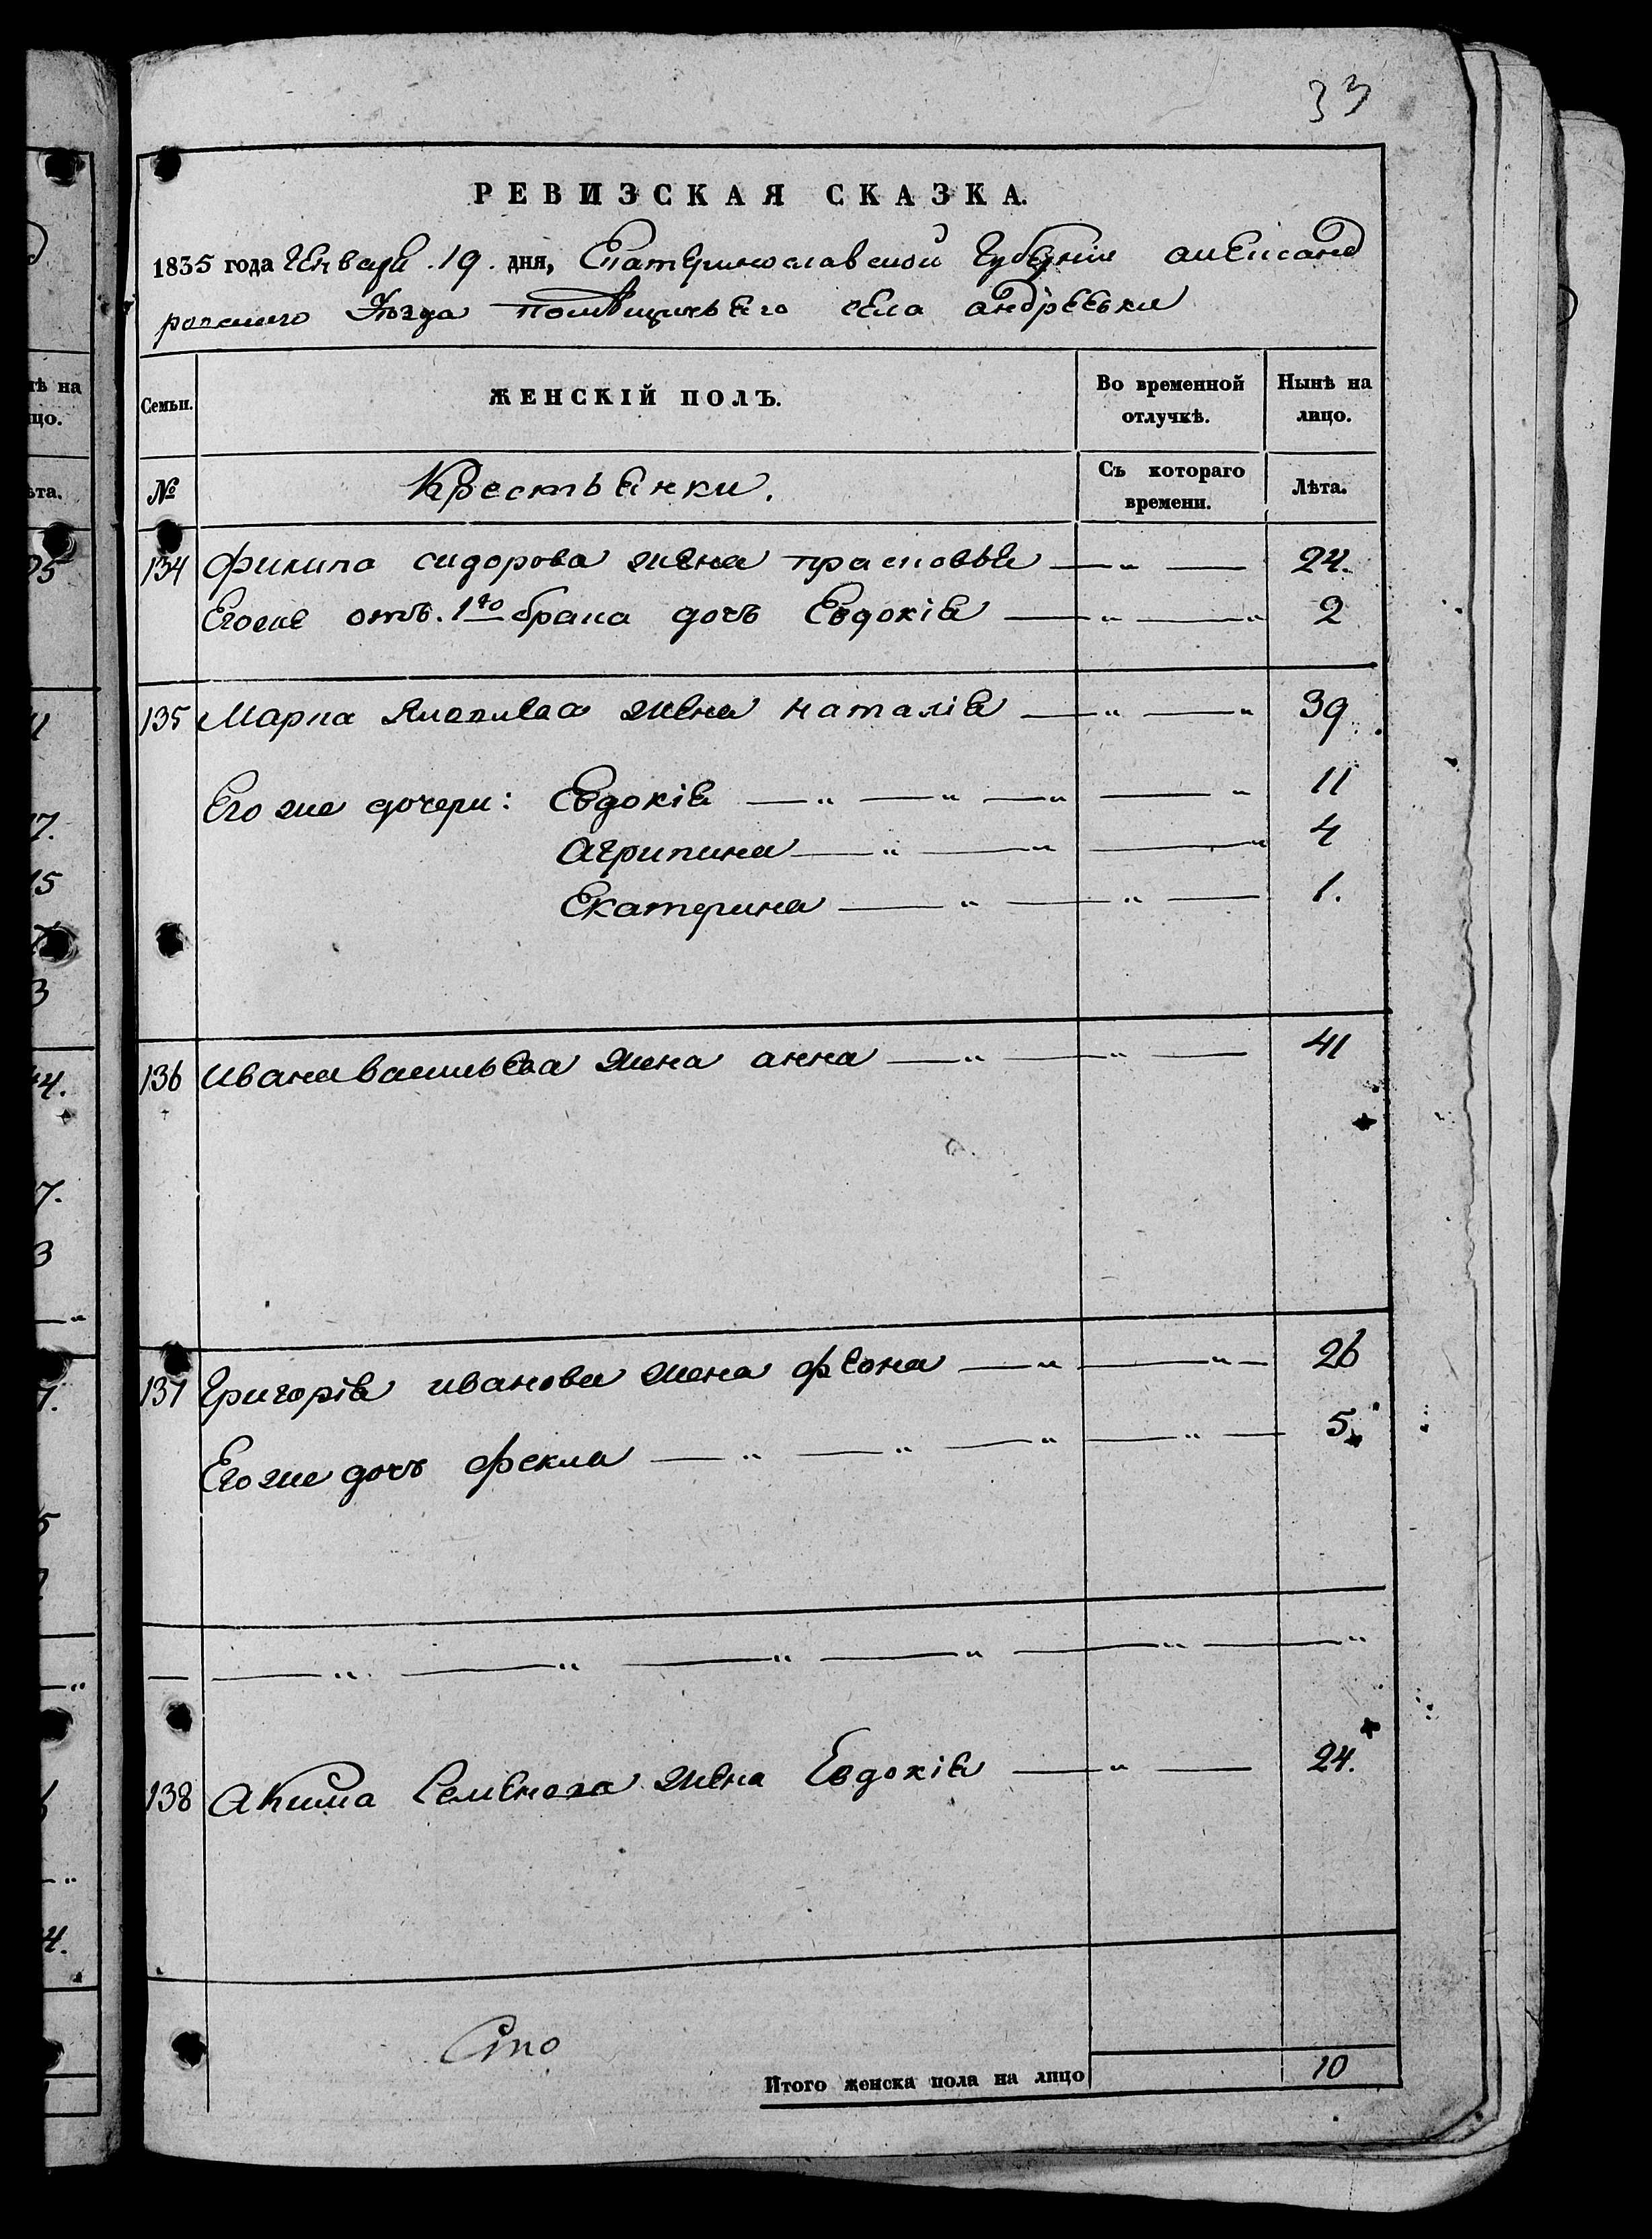 33
РЕВИЗСКАЯ СКАЗКА.
1835 года Генваря .19. дня, Екатеринославской Губерніи александ
ровскаго Уѣзда помѣщичьяго села андреевки
Семьи. ЖЕНСКІЙ ПОЛЪ. Во временной отлучкѣ. Нынѣ на лицо.
№ Крестьянки. Съ котораго времени. Лѣта.
134 филипа сидорова жена прасковья — „ — 24.
Егоже отъ. 1го брака дочь Евдокія — „ — „ 2
135 Марка Яковлева жена наталія — „ — „ 39
Его же дочери: Евдокія — „ — „ — „ — „ 11
Агрипина — „ — „ — „ 4
Екатерина — „ — „ — 1.
136 ивана васильева жена анна — „ — „ — 41
137 Григорія иванова жена феона — „ — „ — 26
Его же дочь фекла — „ — „ — „ — „ — 5.
— — „ — „ — „ — „ — „ — „
138 акима Семенова жена Евдокія — „ — 24.
Итого женска пола на лицо 10